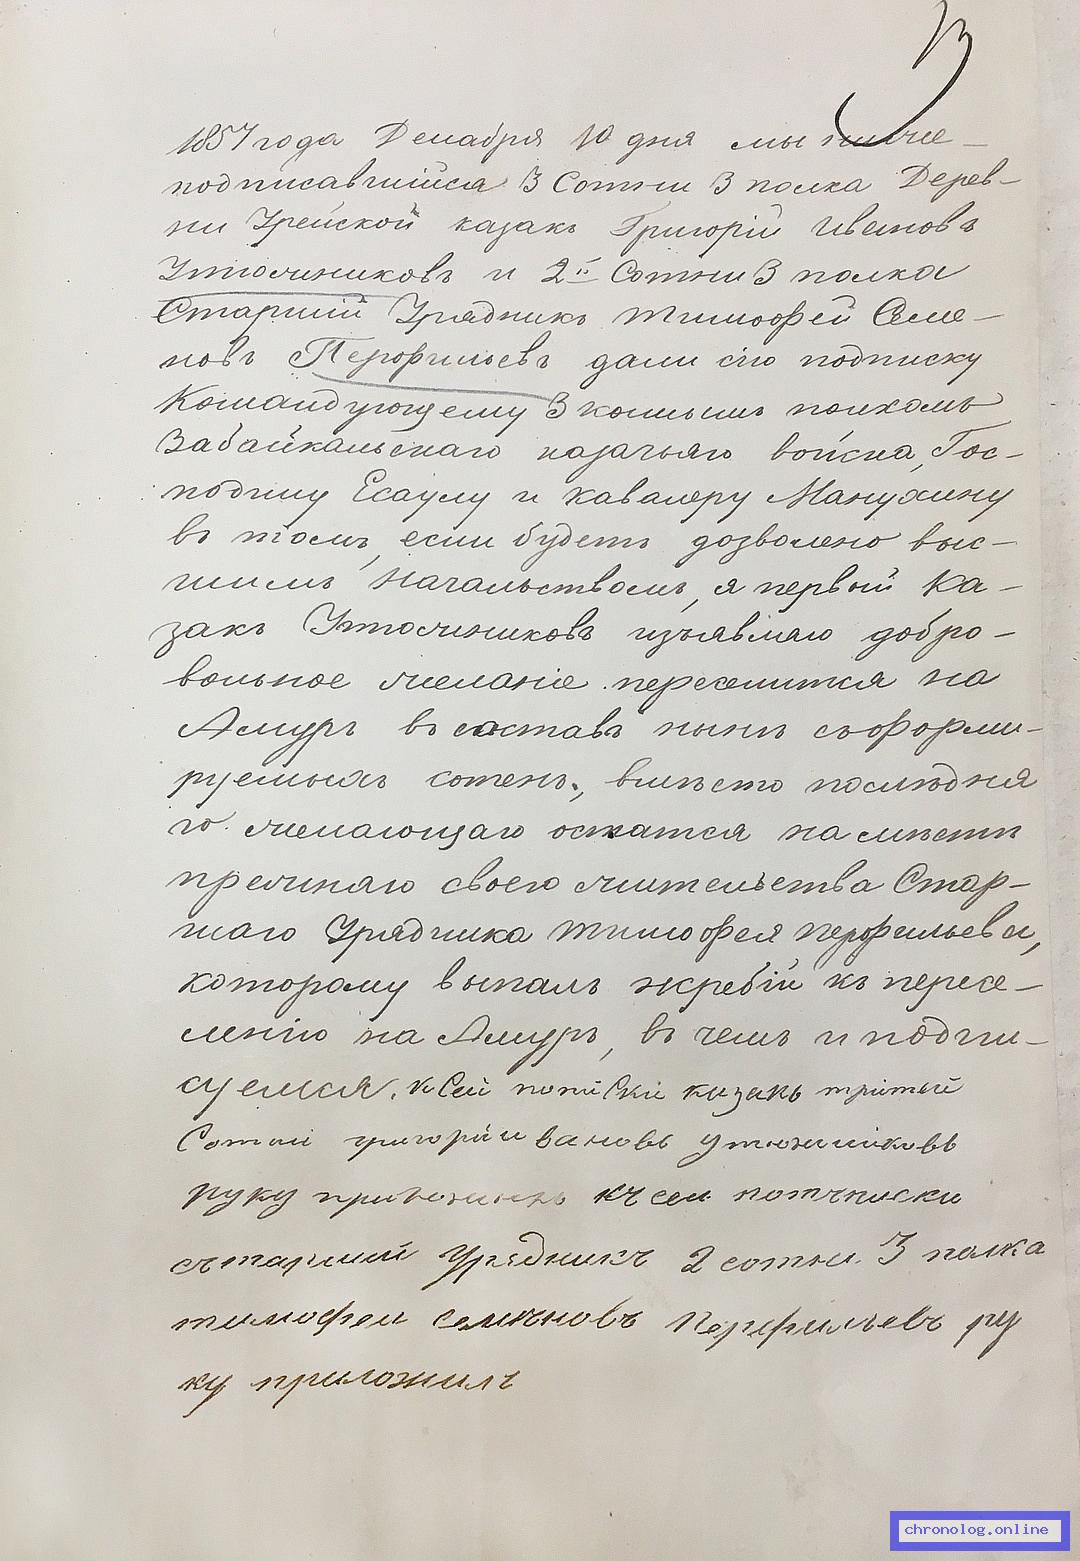 13
1857 года Декабря 10 дня мы ниже-
подписавшийся 3 Сотни 3 полка Дерев-
ни Урейской казакъ Григорій Ивановъ
Утюжниковъ и 2й Сотни 3 полка
Старшій Урядникъ Тимофей Семе-
новъ Перфильевъ дали сію подписку
Командующему 3 коннымъ полкомъ
Забайкальскаго казачьяго войска, Гос-
подину Есаулу и кавалеру Манухину
въ томъ, если будетъ дозволено выс-
шимъ Начальствомъ, я первый Ка-
закъ Утюжниковъ изъявляю добро-
вольное желаніе переселится на
Амуръ въ составъ нынѣ сьформи-
руемыхъ сотенъ, вмѣсто послѣдня
го желающаго остатся на мѣстѣ
прежняго своего жительства Стар-
шаго Урядника Тимофея Перфильева,
которому выпалъ жребій къ пересе-
ленію на Амуръ, въ чемъ и подпи-
суемся. К Сей казакъ третьей
Сотни григорий ивановъ утюжниковъ
руку къ сеи потъписки
сътаршии Урядникъ 2 сотни 3 полка
тимофеи семѣновъ Перфильевъ ру
ку приложилъ
chronolog.online